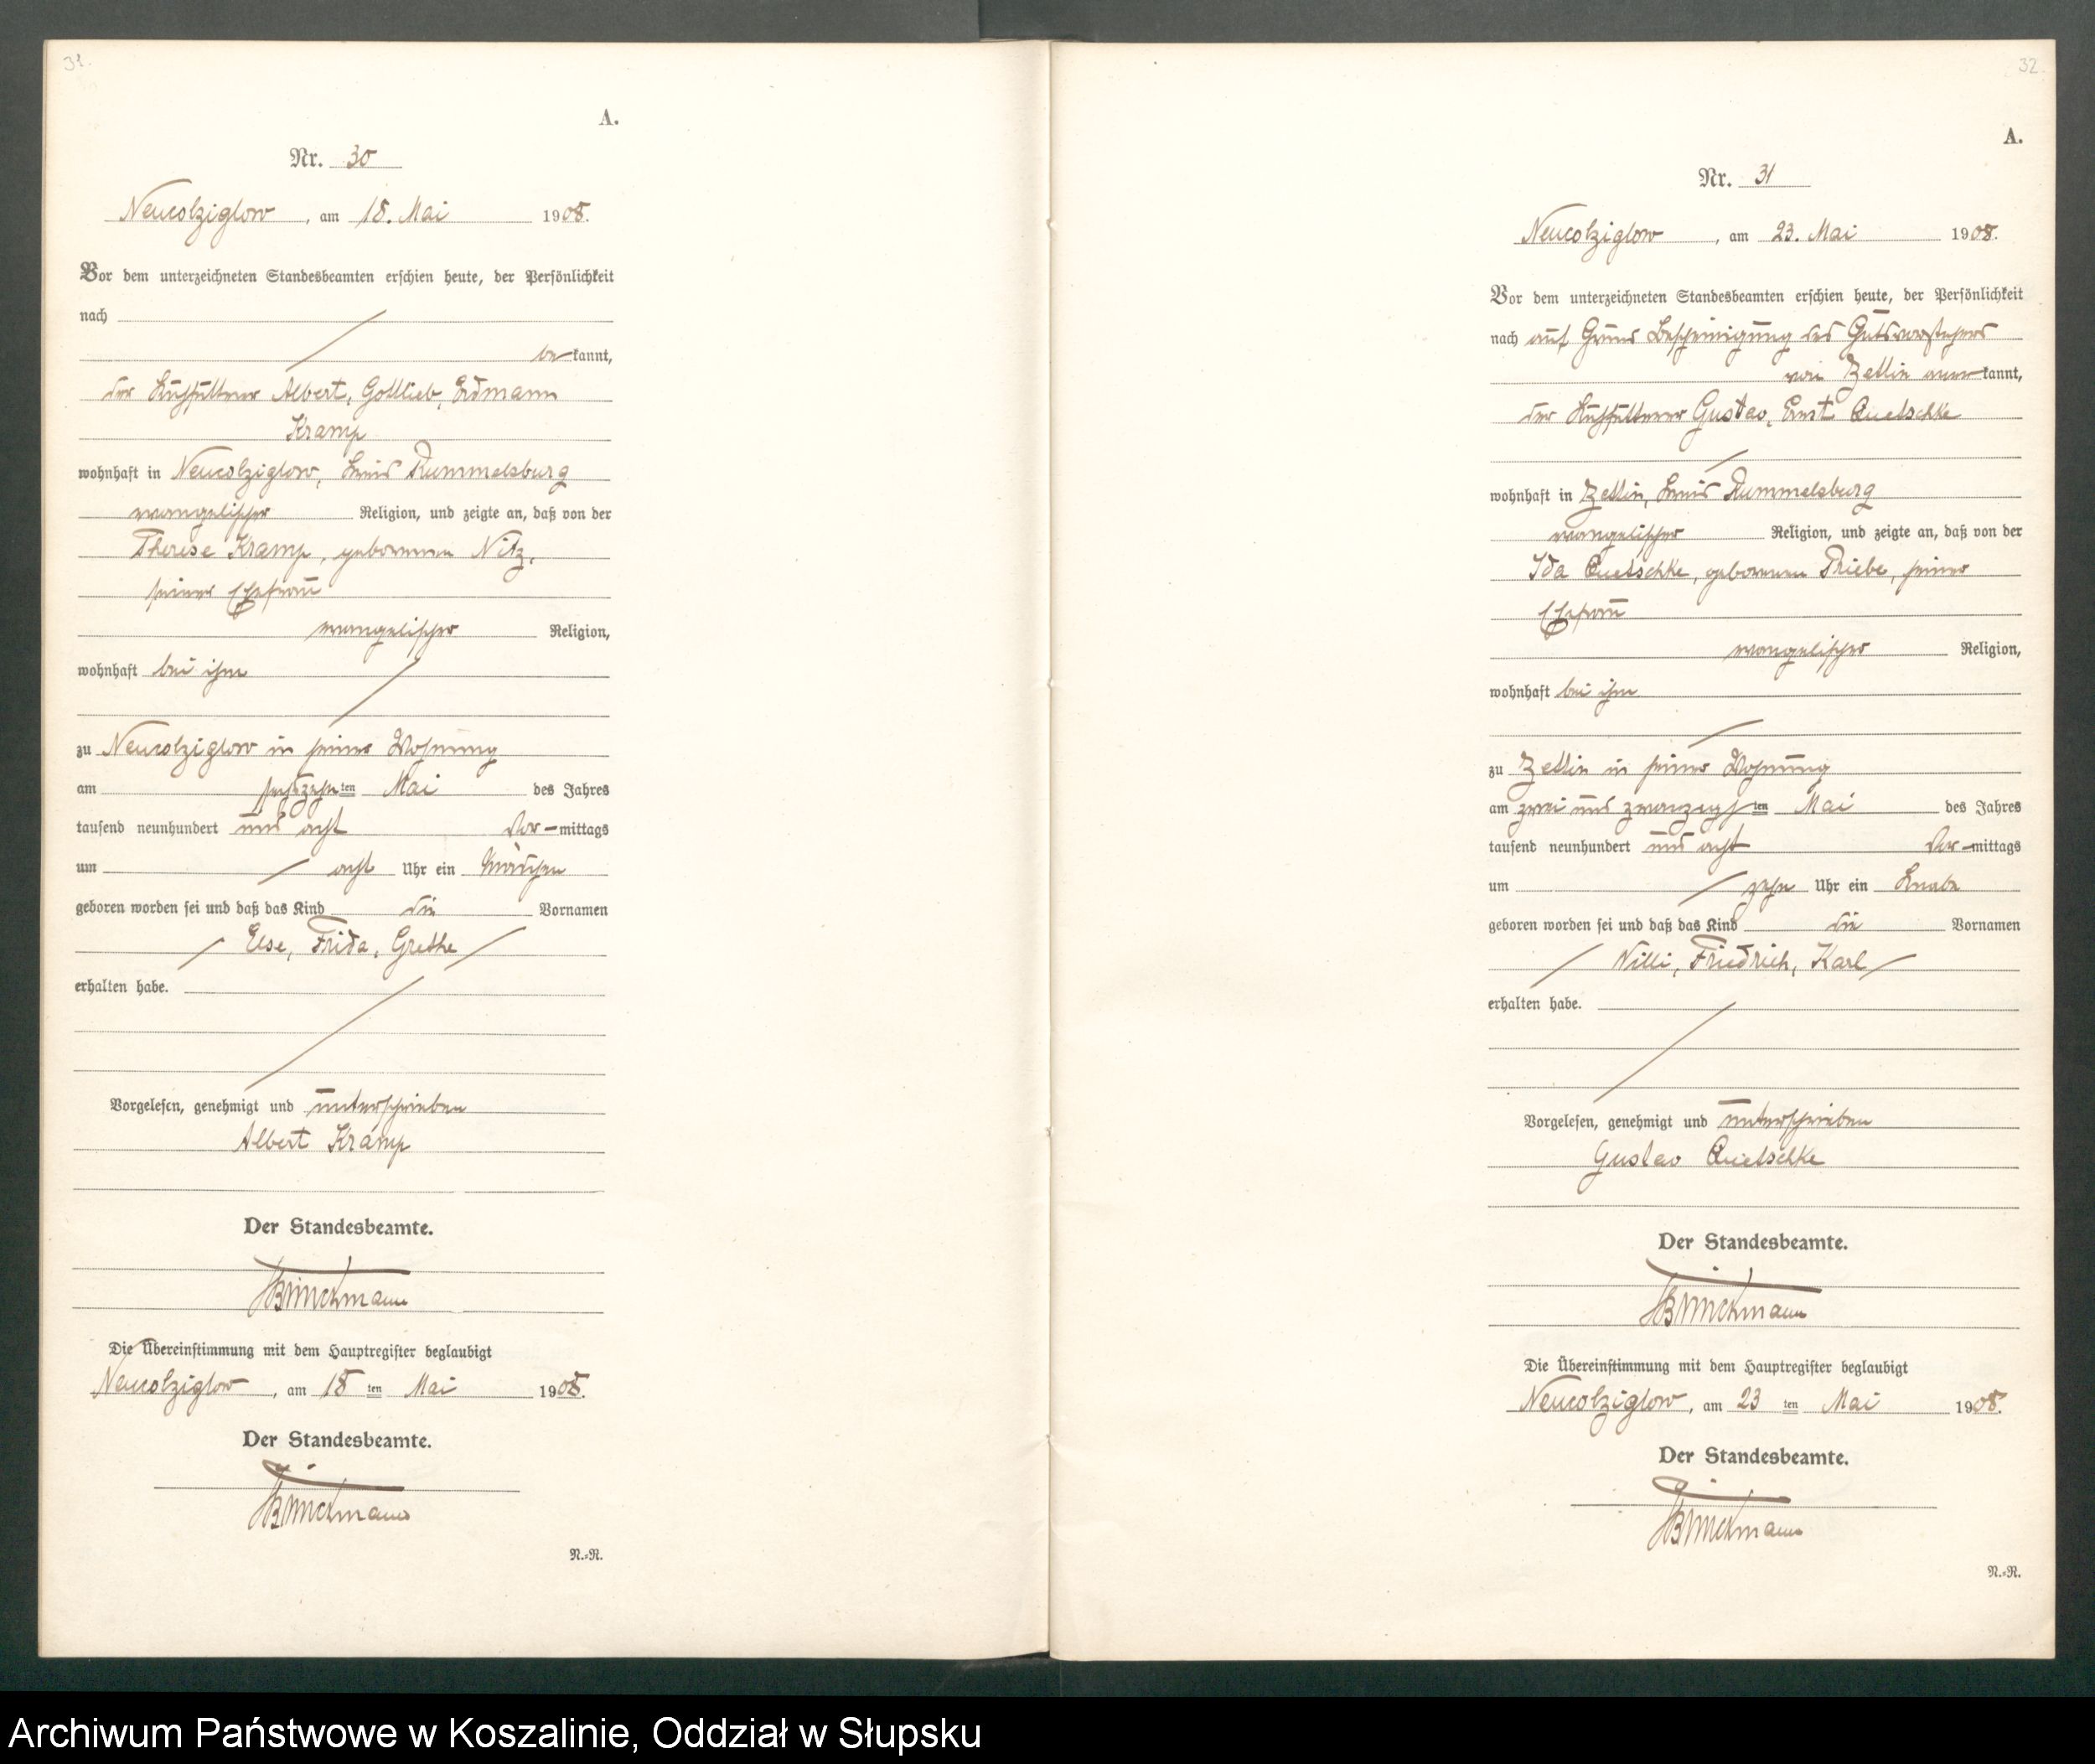 31.
A.
Nr. 30
Neucolziglow, am 18. Mai 1908.
Vor dem unterzeichneten Standesbeamten erschien heute, der Persönlichkeit
nach
be-kannt,
der Kuhfütterer Albert, Gottlieb, Erdmann
Kramp
wohnhaft in Neucolziglow, Kreis Rummelsburg
evangelischer Religion, und zeigte an, daß von der
Therese Kramp, geborenen Nitz,
seiner Ehefrau
evangelischer Religion,
wohnhaft bei ihm
zu Neucolziglow in seiner Wohnung
am sechszehnten Mai des Jahres
tausend neunhundert und acht Vor-mittags
um acht Uhr ein Mädchen
geboren worden sei und daß das Kind die Vornamen
Else, Frida, Grethe
erhalten habe.
Vorgelesen, genehmigt und unterschrieben
Albert Kramp
Der Standesbeamte.
Brinckmann
Die Übereinstimmung mit dem Hauptregister beglaubigt
Neucolziglow, am 18 ten Mai 1908.
Der Standesbeamte.
Brinckmann
N.-R.
32.
A.
Nr. 31
Neucolziglow, am 23. Mai 1908.
Vor dem unterzeichneten Standesbeamten erschien heute, der Persönlichkeit
nach auf Grund Bescheinigung des Gutsvorstehers
von Zettin aner-kannt,
der Kuhfütterer Gustav, Ernst Quetschke
wohnhaft in Zettin, Kreis Rummelsburg
evangelischer Religion, und zeigte an, daß von der
Ida Quetschke, geborenen Priebe, seiner
Ehefrau
evangelischer Religion,
wohnhaft bei ihm
zu Zettin in seiner Wohnung
am zwei und zwanzigsten Mai des Jahres
tausend neunhundert und acht Vor-mittags
um zehn Uhr ein Knabe
geboren worden sei und daß das Kind die Vornamen
Willi, Friedrich, Karl
erhalten habe.
Vorgelesen, genehmigt und unterschrieben
Gustav Quetschke
Der Standesbeamte.
Brinckmann
Die Übereinstimmung mit dem Hauptregister beglaubigt
Neucolziglow, am 23 ten Mai 1908.
Der Standesbeamte.
Brinckmann
N.-R.
Archiwum Państwowe w Koszalinie, Oddział w Słupsku